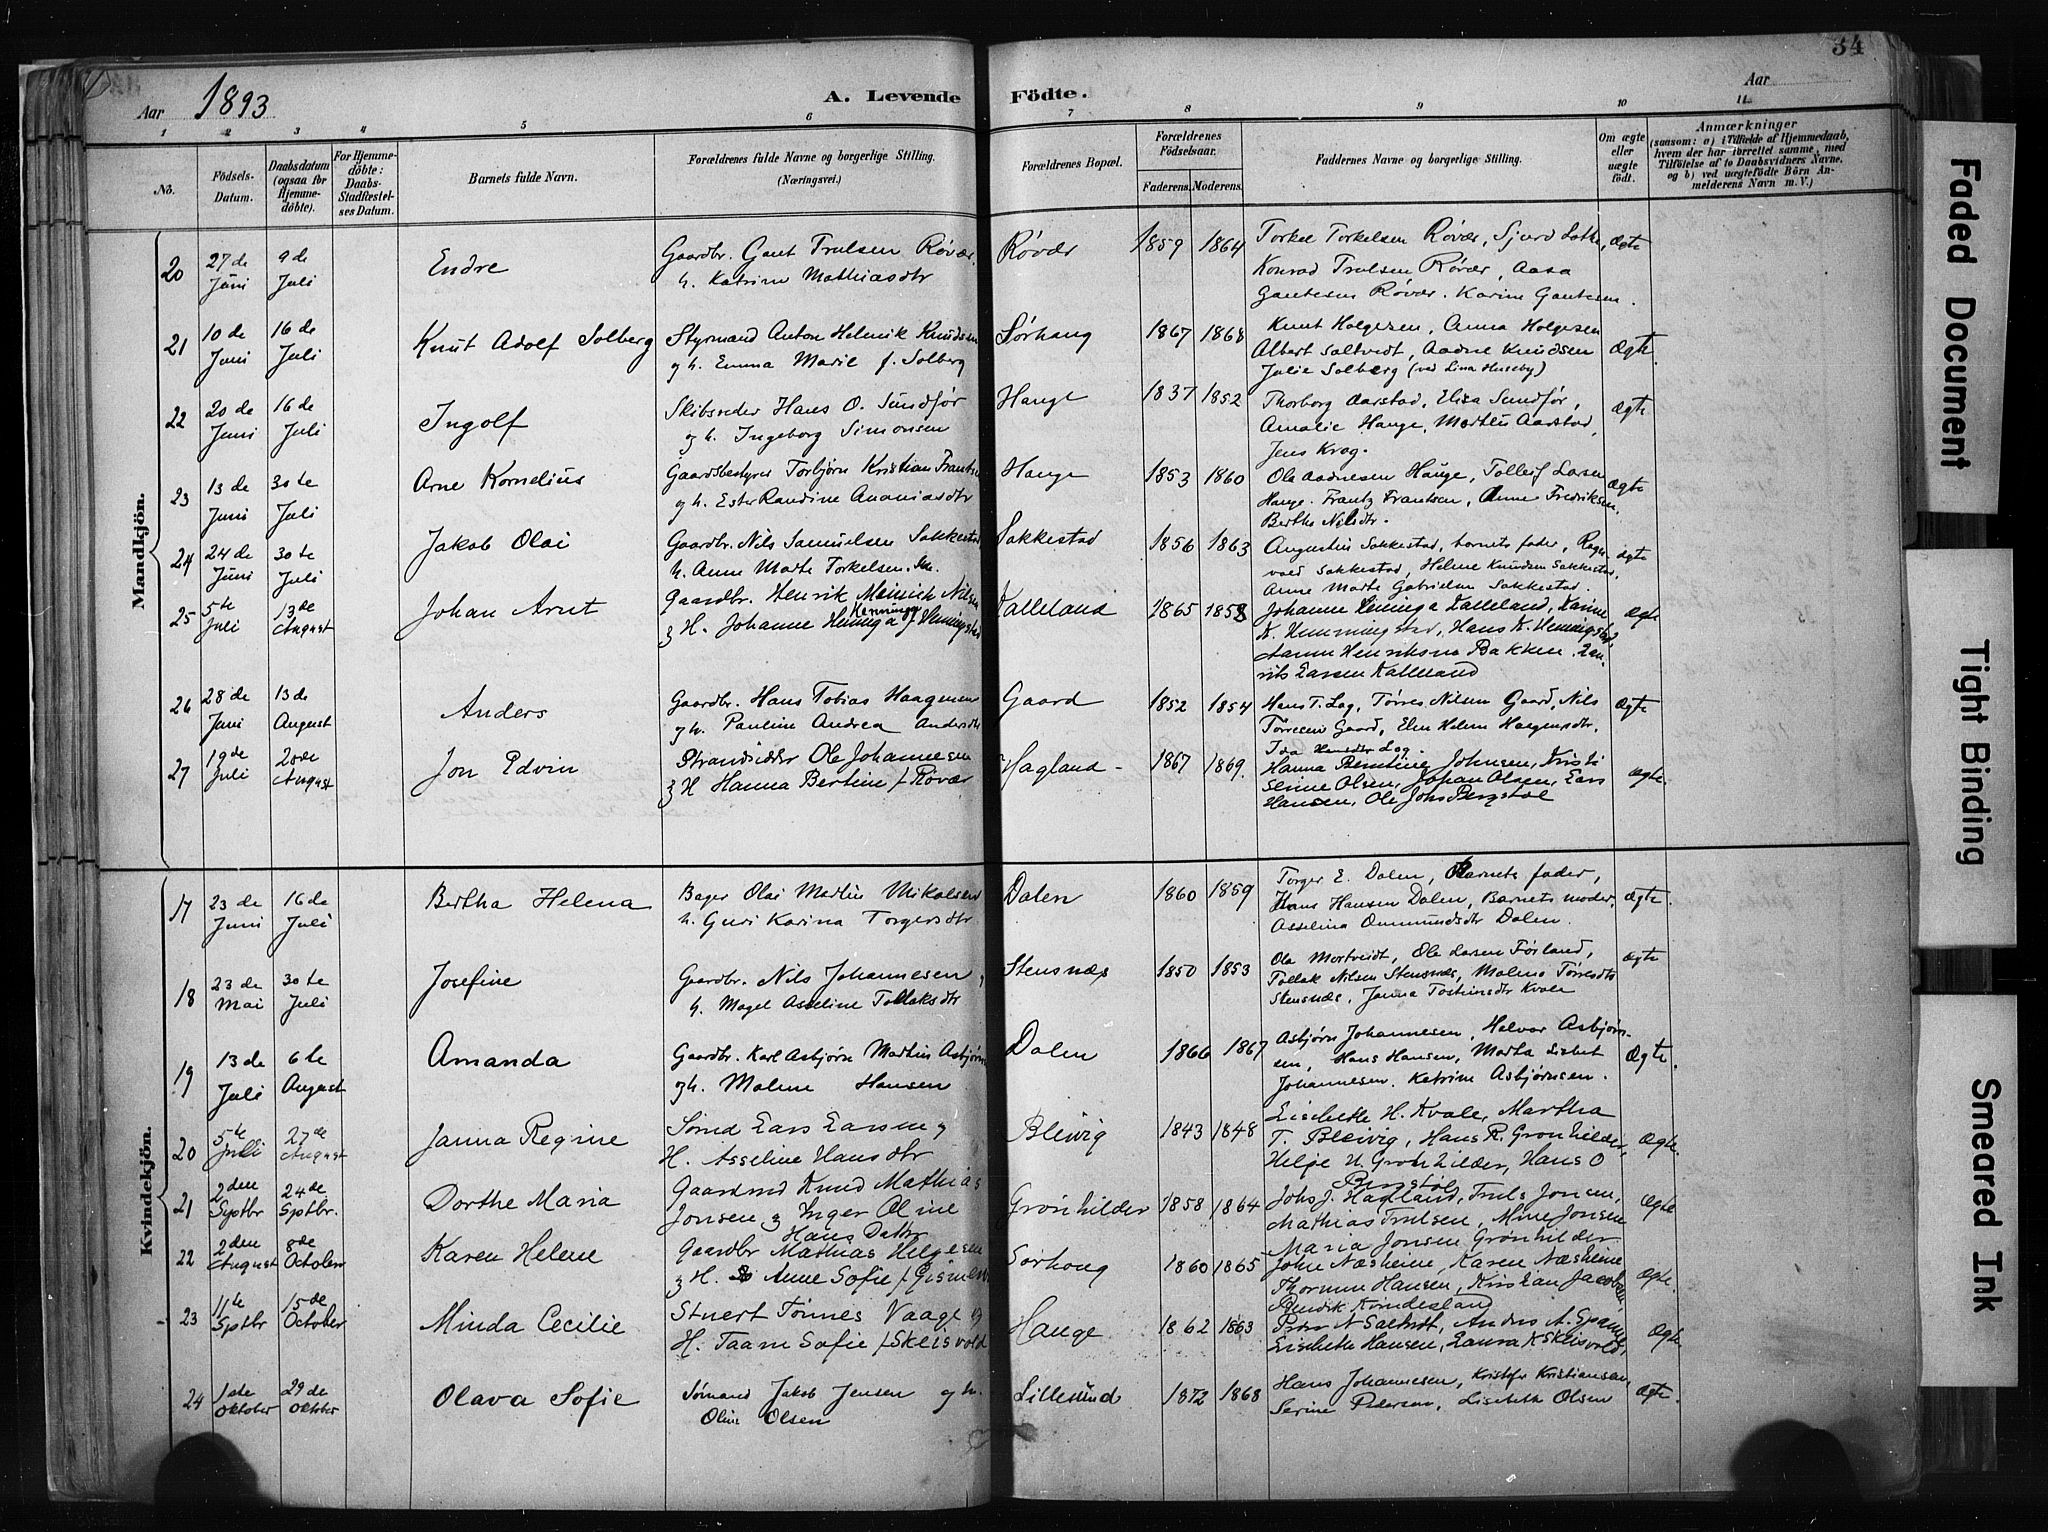 34
Aar 1893 A. Levende Födte. Aar
1 2 3 4 5 6 7 8 9 10 11
No. Födsels-Datum. Daabsdatum (ogsaa for Hjemme-döbte). For Hjemme-döbte: Daabs-Stadfæstel-ses Datum. Barnets fulde Navn. Forældrenes fulde Navne og borgerlige Stilling. (Næringsvei.) Forældrenes Bopæl. Forældrenes Födselsaar. Faderens. Moderens. Faddernes Navne og borgerlige Stilling. Om ægte eller uægte födt. Anmærkninger (saasom: a) i Tilfælde af Hjemmedaab, hvem der har forrettet samme, med Tilföielse af to Daabsvidners Navne, og b) ved uægtefödte Börn An-melderens Navn m. V.)
Mandkjön.
20 27de Juni 9de Juli Endre Gaardbr. Gaut Trulsen Røvær, h. Katrine Mathiasdtr Røvær 1859 1864 Torkel Torkelsen Røvær, Sjurd Lothe, ægte
Konrad Trulsen Røvær, Aasa
Gautesen Røvær. Karine Gautesen.
21 10de Juni 16de Juli Knut Adolf Solberg Styrmand Anton Helmik Knudsen og h. Emma Marie f. Solberg Sørhaug 1867 1868 Knut Holgersen, Anna Holgersen
Albert Saltvedt, Aadne Knudsen Ægte.
Julie Solberg (ved Lina Huseby)
22 20de Juni 16de Juli Ingolf Skibsreder Hans O. Sundfør og h. Ingeborg Simonsen Hauge 1837 1852 Thorborg Aarstad, Elisa Sundfør, ægte
Amalie Hauge, Marthe Aarstad,
Jens Krog.
23 13de Juni 30te Juli Arne Kornelius Gaardsbestyrer Torbjørn Kristian Frantsen og h. Ester Randine Ananiasdtr Hauge 1853 1860 Ole Aadnesen Hauge, Tolleif Larsen ægte
Hauge. Frantz Frantsen, Anne Fredriksen,
Bertha Nilsdtr.
24 24de Juni 30te Juli Jakob Olai Gaardbr. Nils Samuelsen Sakkestad h. Anne Marte Torkelsen. Sakkestad 1856 1863 Augustin Sakkestad, barnets fader, Ragn- ægte
vald Sakkestad, Helene Knudsen Sakkestad,
Anne Marte Gabrielsen Sakkestad.
25 5te Juli 13de August Johan Arnt Gaardbr. Henrik Meinich Nilsen & H. Johanne f Hemingstad Kalleland 1865 1858 Johanne Kalleland, Karine Ægte
K. Hemmingstad, Hans K. Hemmingstad,
Henriksen Bakken.
Larsen Kalleland
26 28de Juni 13de August Anders Gaardbr. Hans Tobias Haagensen og h. Pauline Andrea Andersdtr Gaard 1852 1854 Hans T. Lag, Tørres Nilsen Gaard, Nils Ægte
Tørresen Gaard, Elen Helene Haagensdtr,
Ida Hansdtr Lag.
27 19de Juli 20de August Jon Edvin Strandsidder Ole Johannesen & H Hanna Bertine f Røvær Hagland 1867 1869. Hanna Berntine Johnsen, Kristi Ægte.
Serine Olsen, Johan Olsen, Lars
Hansen, Ole Johs Bergstøl
Kvindekjön.
17 23de Juni 16de Juli Bertha Helena Bager Olai Martin Mikalsen h. Guri Karina Torgersdtr. Dalen 1860 1859 Torger E. Dalen, Barnets fader,
Hans Hansen Dalen, Barnets moder, ægte.
Asselina Ommundsdtr Dalen.
18 23de Mai 30te Juli Josefine Gaardbr. Nils Johannesen h. Magel Asseline Tollaksdtr Stensnæs 1850 1853 Ola Mortveidt, Ole Larsen Førland, ægte
Tollak Nilsen Stensnæs, Malene Tørresdtr
Stensnæs, Janna Tostensdtr Kvale
19 13de Juli 6te August Amanda Gaardbr. Karl Asbjørn Martin Asbjørnsen og h. Malene Hansen Dalen 1866 1867 Asbjørn Johannesen, Halvor Asbjørn-
sen, Hans Hansen, Marta Lisbet Ægte.
Johannesen. Katrine Asbjørnsen.
20 5te Juli 27de August Janna Regine Sømd Lars Larsen & H. Asseline Hansdtr Bleivig 1843 1848 Lisebethe H. Kvale, Martha
T. Bleivig, Hans R. Grønhilder, Ægte.
Helje N. Grønhilder, Hans O
Bergstøl
21 2den Sptbr 24de Sptbr. Dorthe Maria Gaardmd Knud Mathias Jonsen & Inger Oline Hans Datter Grønhilder 1858 1864 Johs J. Hagland, Truls Jonsen, Ægte
Mathias Trulsen, Mine Jonsen
Maria Jonsen Grønhilder
22 2den August 8de October Karen Helene Gaardbr Mathias Helgesen & H. Anne Sofie f Gismervik Sørhoug 1860 1865 John Næsheime, Karen Næsheime
Hansen, Kristian Jacobsen, Ægte.
Bendik
23 11te Sptbr 15de October Minda Cecilie Stuert Tønnes Vaage og H. Taam Sofie f Skeisvold Hauge 1862 1863 Peter N Saltvedt, Anders A.
Lisebethe Hansen, Laura K Skeisvold, Ægte
24 1ste Oktober 29de Oktober Olava Sofie Sømand Jakob Jensen og h. Oline Olsen Lillesund 1872 1868 Hans Johannesen, Kristofer Kristiansen, Ægte.
Serine Pedersen, Lisebeth Olsen
Faded Document
Tight Binding
Smeared Ink